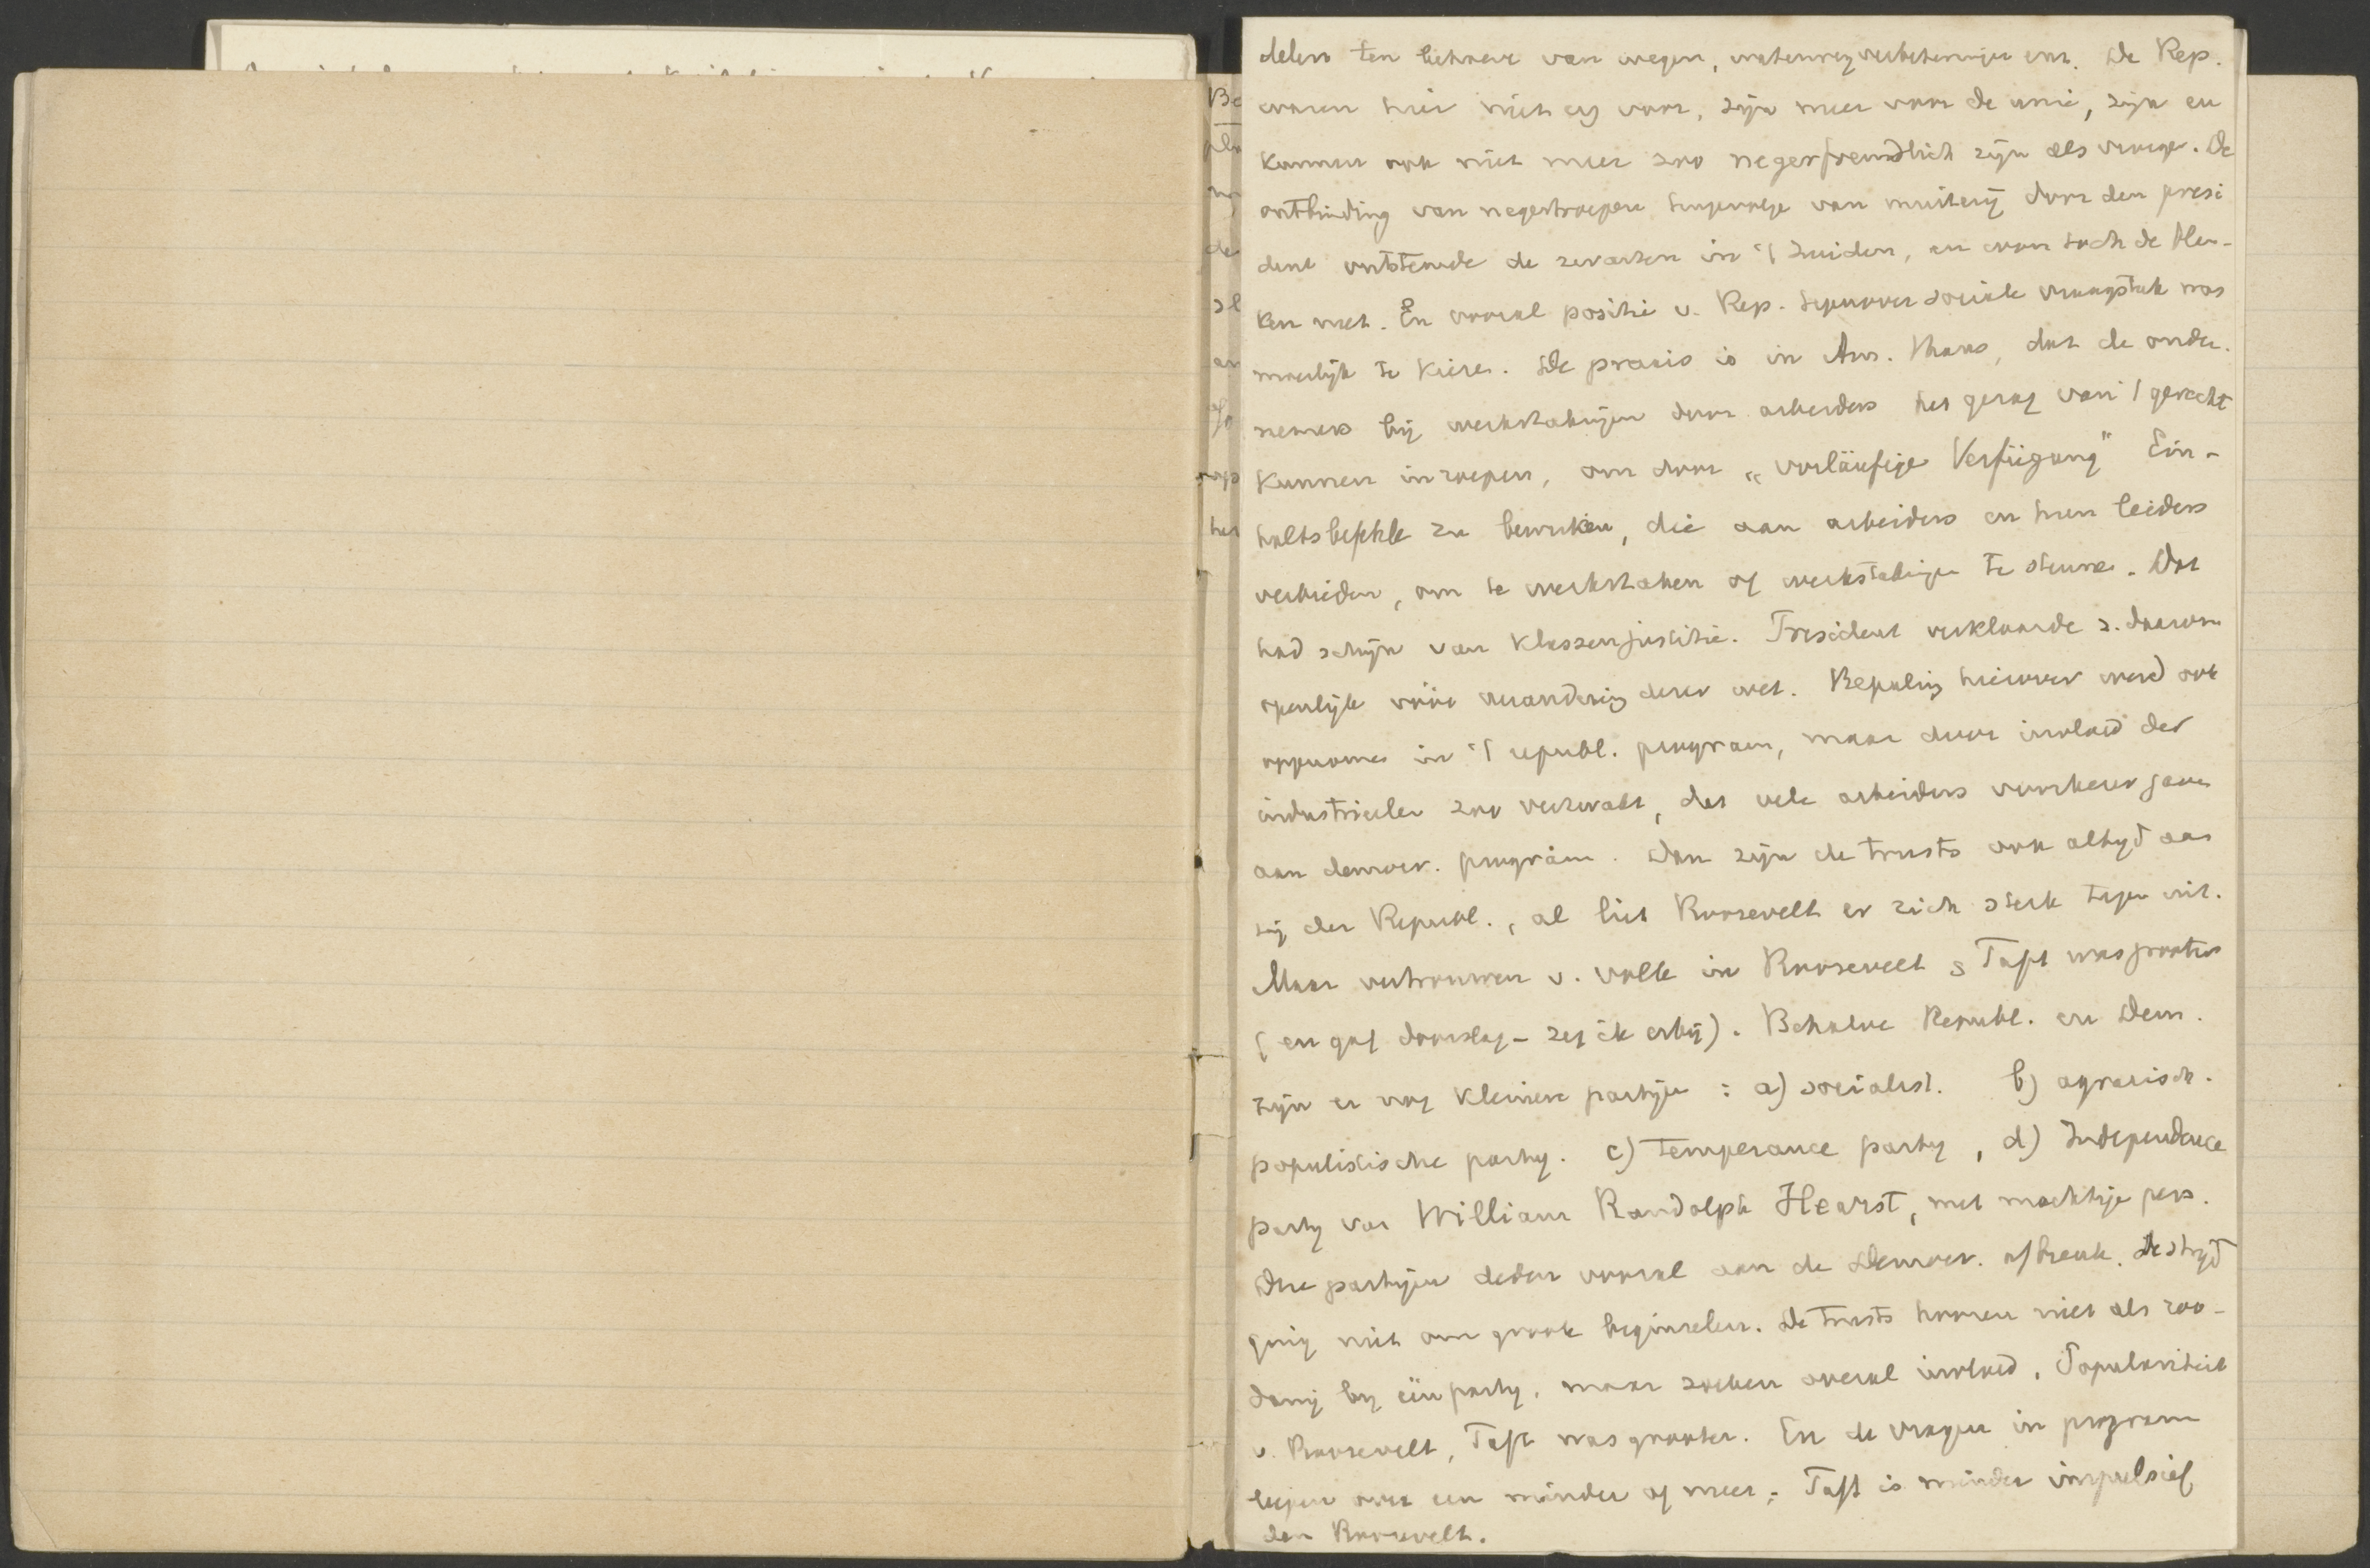 delen ten behoeve van wegen, waterwegverbeteringen enz. De Rep.
waren hier niet erg voor, zijn meer voor de unie, zijn en
kunnen ook niet meer zoo negerfreundlich zijn als vroeger. De
ontbinding van negertroepen tengevolge van muiterij door den presi
dent ontstemde de zwarten in 't Zuiden, en won toch de blan-
ken niet. En vooral positie v. Rep. tegenover sociale vraagstuk was
moeilijk te kiezen. De praxis is in Am. thans, dat de onder-
nemers bij werkstakingen door arbeiders het gezag van 't gerecht
kunnen inroepen, om door „vorläufige Verfügung" Ein-
haltsbefehle zu bewirken, die aan arbeiders en hun leiders
verbieden, om te werkstaken of werkstakingen te steunen. Dat
had schijn van klassenjustitie. President verklaarde z. daarom
openlijk vóór verandering dezer wet. Bepaling hierover werd ook
opgenomen in 't republ. program, maar door invloed der
industrieelen zoo verzwakt, dat vele arbeiders voorkeur gaven
aan democr. program. Dan zijn de trusts ook altijd aan
zij der Republ., al liet Roosevelt er zich sterk tegen uit.
Maar vertrouwen v. volk in Roosevelt & Taft was grooter
(en gaf doorslag – zeg ik erbij). Behalve Republ. en Dem.
zijn er nog kleinere partijen : a) socialist. b) agrarisch.
populistische partij. c) Temperance party, d) Independence
party van William Randolph Hearst, met machtige pers.
Die partijen deden vooral aan de Democr. afbreuk. De strijd
ging niet om groote beginselen. De trusts hooren niet als zoo-
danig bij één partij, maar zoeken overal invloed. Populariteit
v. Roosevelt, Taft was grooter. En de vragen in program
liepen over een minder of meer; Taft is minder impulsief
dan Roosevelt.